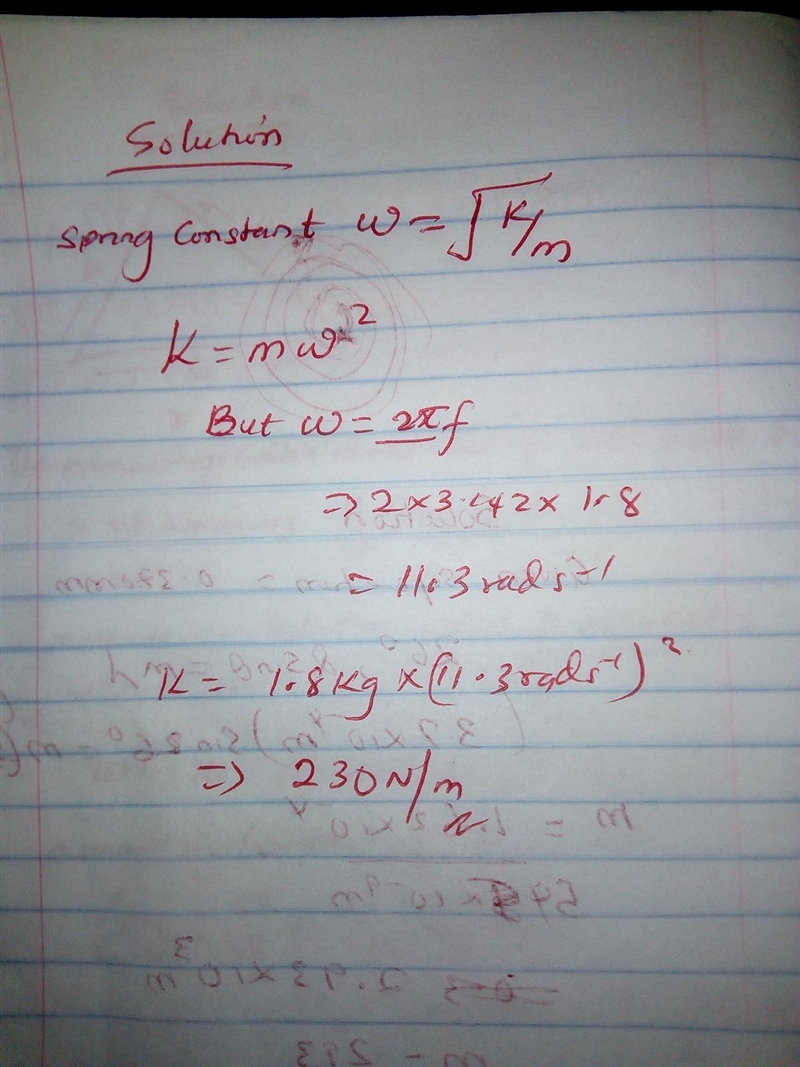 Solution
Spring Constant ω = √K/m
K = mω²
But ω = 2πf
⇒ 2×3.142× 1.8
= 11.3 rad s⁻¹
K = 1.8Kg ×(11.3rads⁻¹)²
⇒ 230N/m